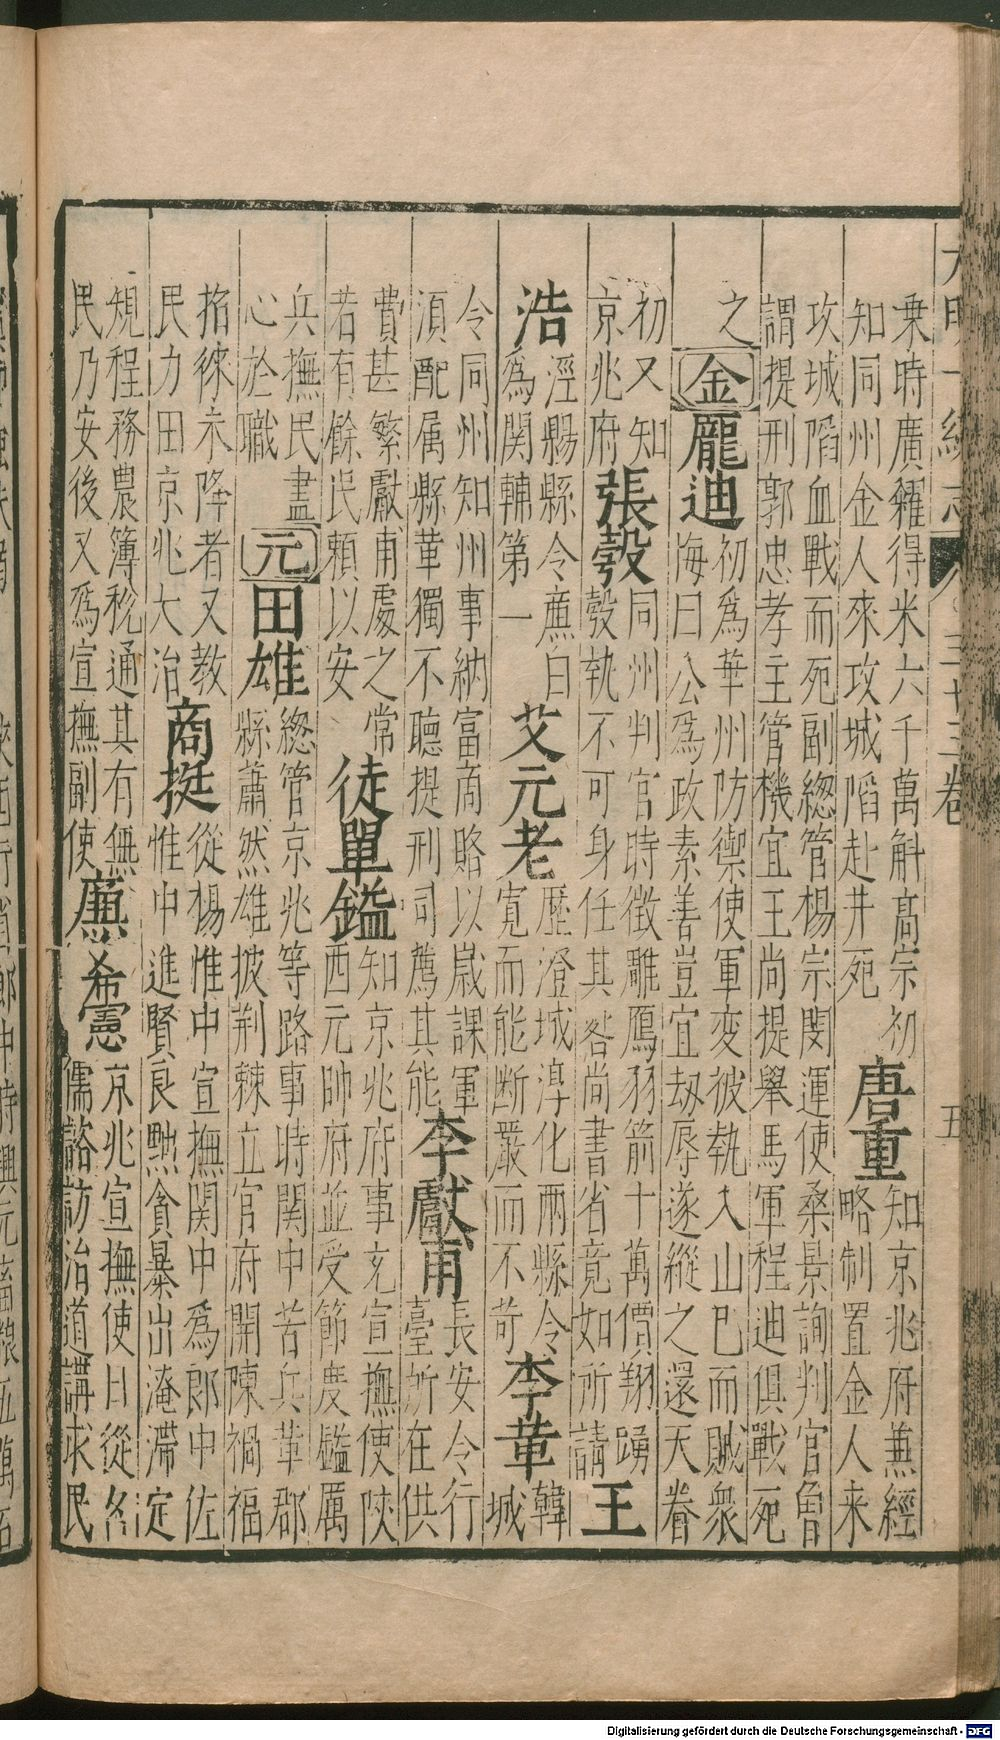 大明一統志 三十三卷 五
乗時廣糴得米六千萬斛髙宗初
知同州金人來攻城陷赴井死
唐重
知京兆府兼經
略制置金人来
攻城陷血戰而死副總管楊宗閔運使桑景詢判官魯
謂提刑郭忠孝主管機宜王尚提舉馬軍程迪俱戰死
之
金
龎迪
初爲華州防禦使軍変被執入山巴而賊衆
悔曰公爲政素善豈宜劫辱遂縱之還天眷
初又知
京兆府
張彀
同州判官時徴雕鴈羽箭十萬價翔踴
彀執不可身任其咎尚書省竟如所請
王
浩
涇陽縣令亷白
爲関輔第一
艾元老
歷澄城淳化两縣令
寛而能断嚴而不苛
李革
韓
城
令同州知州事納富商賂以嵗課軍
湏配属縣革獨不聴提刑司薦其能
李獻甫
長安令行
臺所在供
費甚繁獻甫處之常
若有餘民頼以安
徒單鎰
知京兆府事充宣撫使陜
西元帥府並受節度鎰厲
兵撫民盡
心於職
元
田雄
緫管京兆等路事時関中苦兵革郡
縣蕭然雄披荆棘立官府開陳禍福
招徠未降者又教
民力田京兆大治
商挺
從楊惟中宣撫関中爲郎中佐
惟中進賢良黜貪暴出淹滯定
䂓程務農簿税通其有無
民乃安後又爲宣撫副使
亷希憲
京兆宣撫使日從名
儒諮訪治道講求民
Digitalisierung gefördert durch die Deutsche Forschungsgemeinschaft - DFG